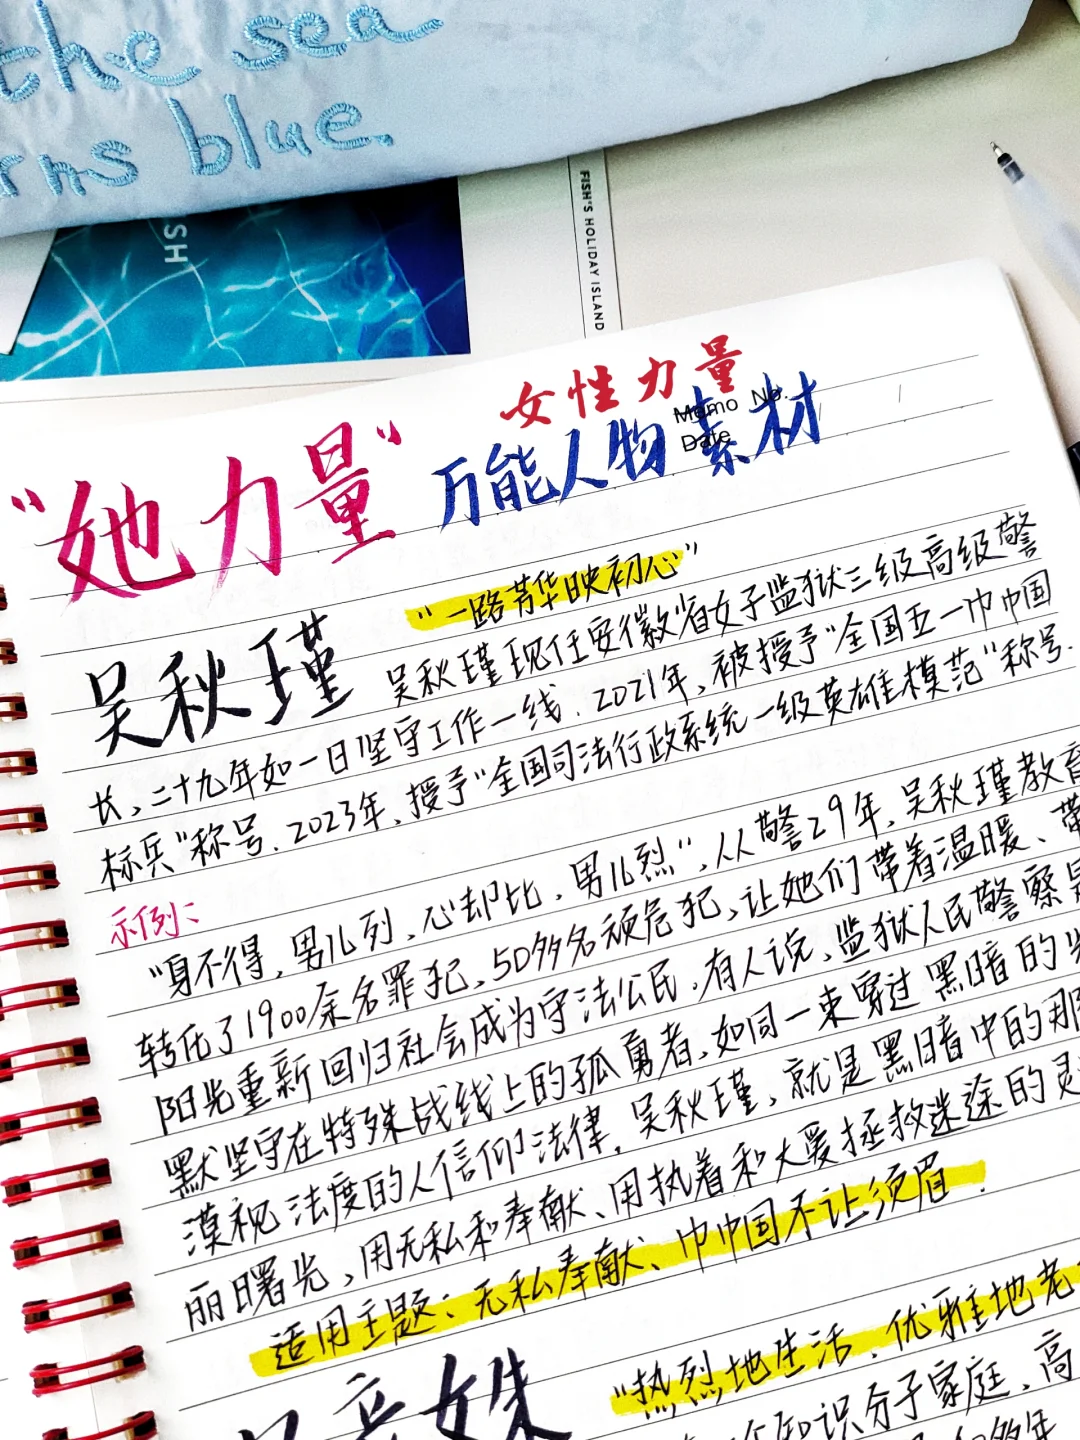 the sea
rns blue.
SH
FISH'S HOLIDAY ISLAND
女性力量
Memo No.
Date
"她力量"万能人物素材
"一路芳华映初心"
吴秋瑾 吴秋瑾现任安徽省女子监狱三级高级警
长,二十九年如一日坚守工作一线.2021年,被授予"全国五一巾帼
标兵"称号.2023年,授予"全国司法行政系统一级英雄模范"称号.
示例:
"身不得,男儿列,心却比,男儿烈",从警29年,吴秋瑾教育
转化了1900余名罪犯、50多名顽危犯,让她们带着温暖、带
阳光重新回归社会成为守法公民.有人说,监狱人民警察是
默坚守在特殊战线上的孤勇者,如同一束穿过黑暗的光
漠视法度的人信仰法律.吴秋瑾,就是黑暗中的那
丽曙光,用无私和奉献、用执着和大爱拯救迷途的灵
适用主题:无私奉献、巾帼不让须眉.
"热烈地生活,优雅地老
知识分子家庭,高
多年